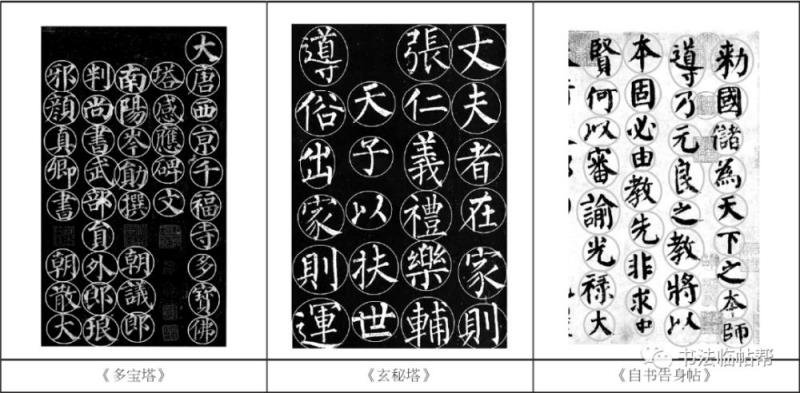 大唐西京千福寺多寶佛
塔感應碑文
南陽岑勛撰 朝議郎
判尚書武部員外郎琅
邪顏真卿書 朝散大
丈夫者在家則
張仁義禮樂輔
天子以扶世
導俗出家則運
勅國儲為天下之本師
導乃元良之教將以
本固必由教先非求中
賢何以審諭光祿大
《多宝塔》
《玄秘塔》
《自书告身帖》
书法临帖帮